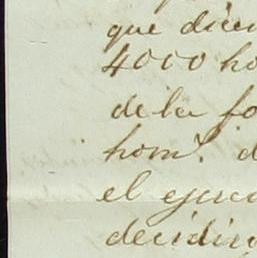 que dicen
4000 ho
de la fo
hom.^s d
el ejerc
decidi